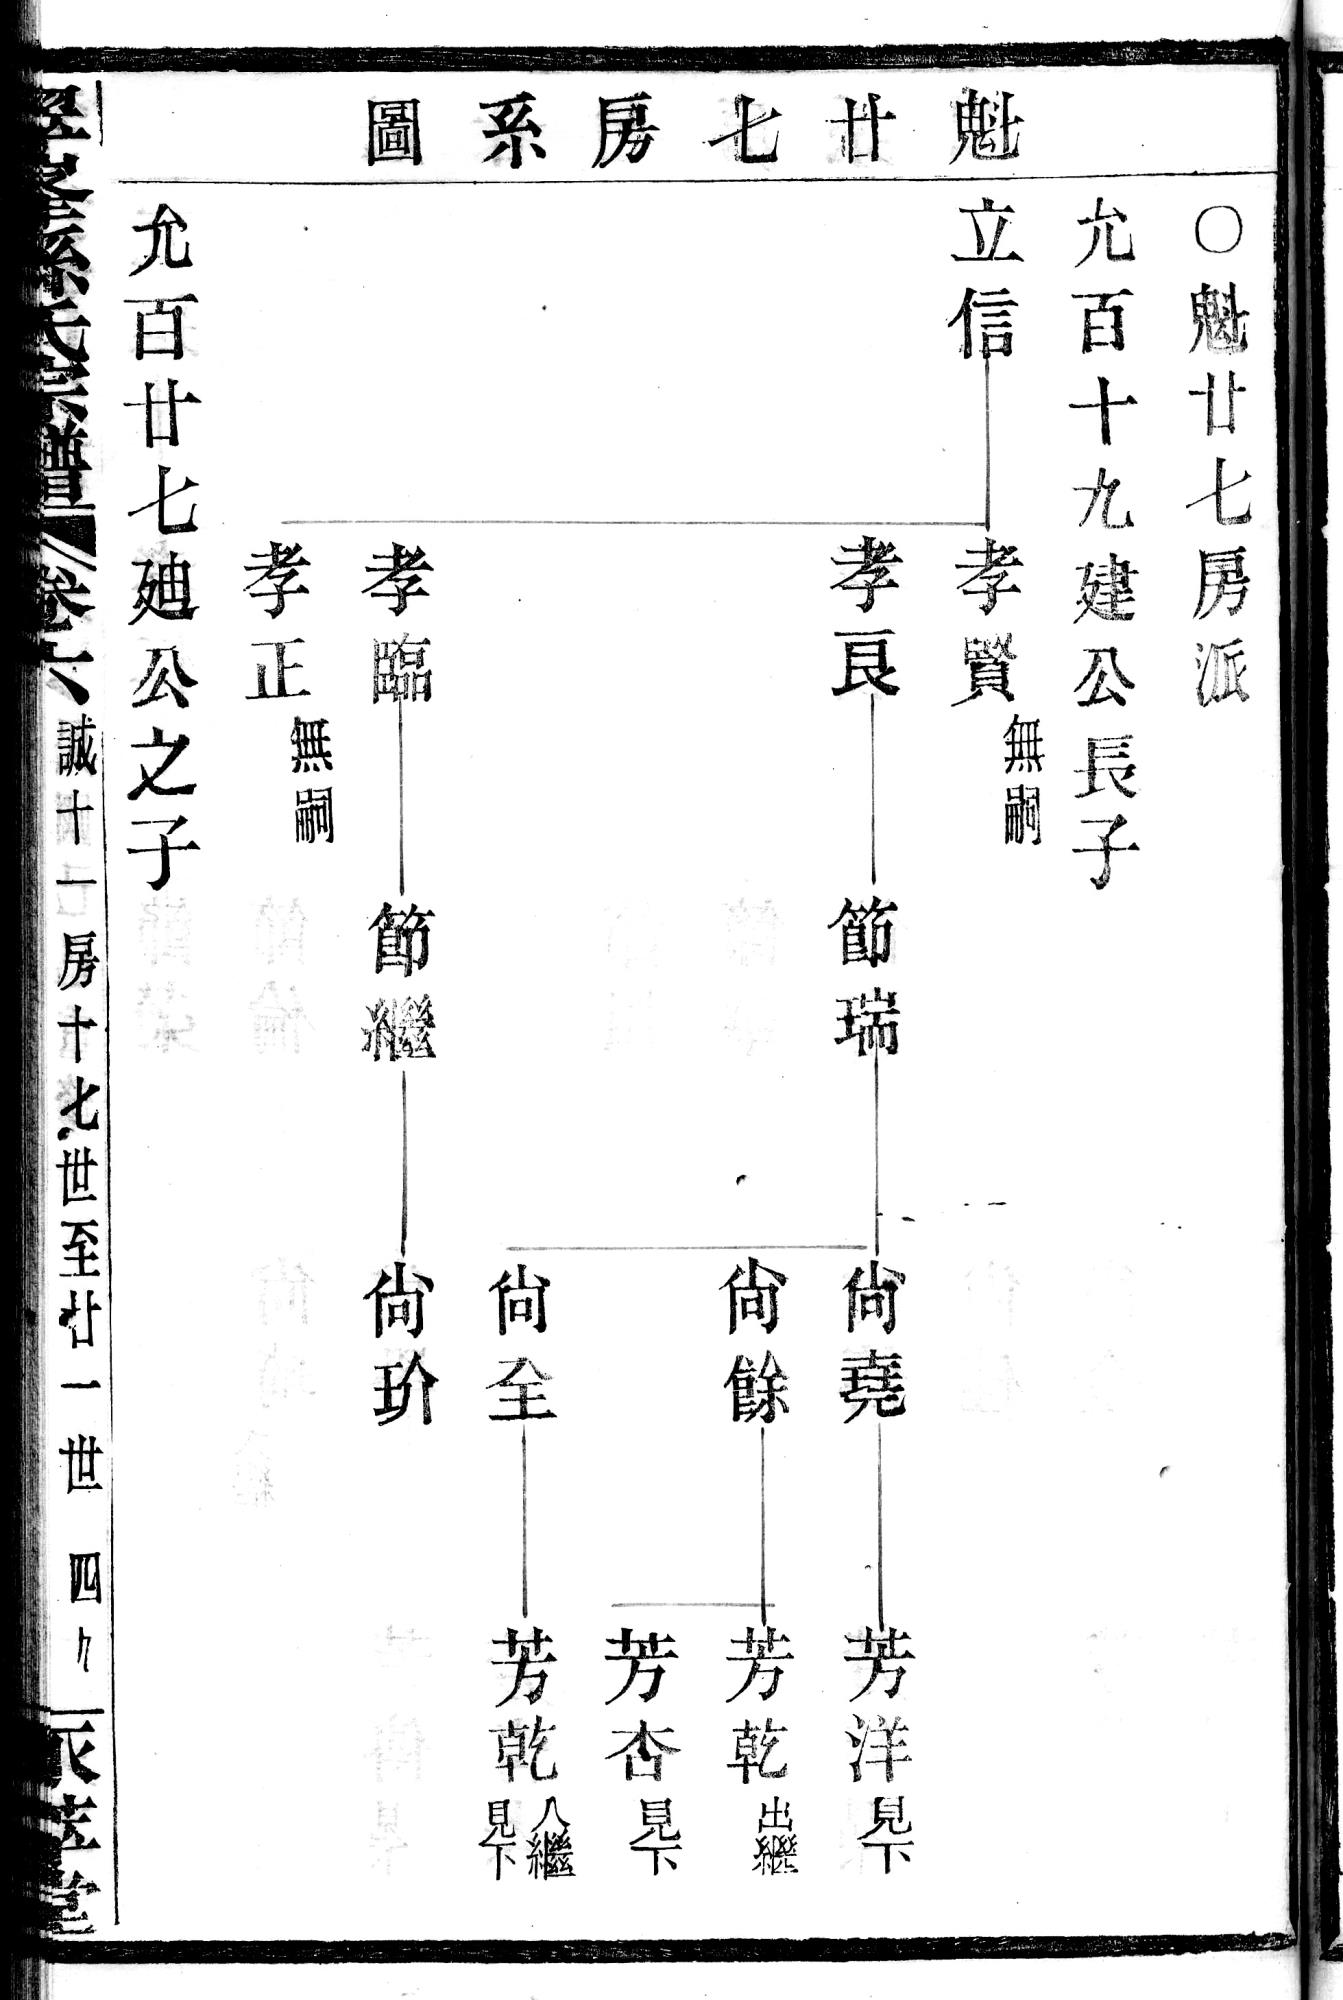 魁廿七房系圖
○魁廿七房派
允百十九建公長子
立信
孝賢 無嗣
孝良
節瑞
尙堯
芳洋 見下
尙餘
芳乾 出繼
芳杏 見下
尙全
芳乾 入繼 見下
孝臨
節繼
尙玠
孝正 無嗣
允百廿七廸公之子
孫氏宗譜 卷六 誠十一房十七世至廿一世 四九